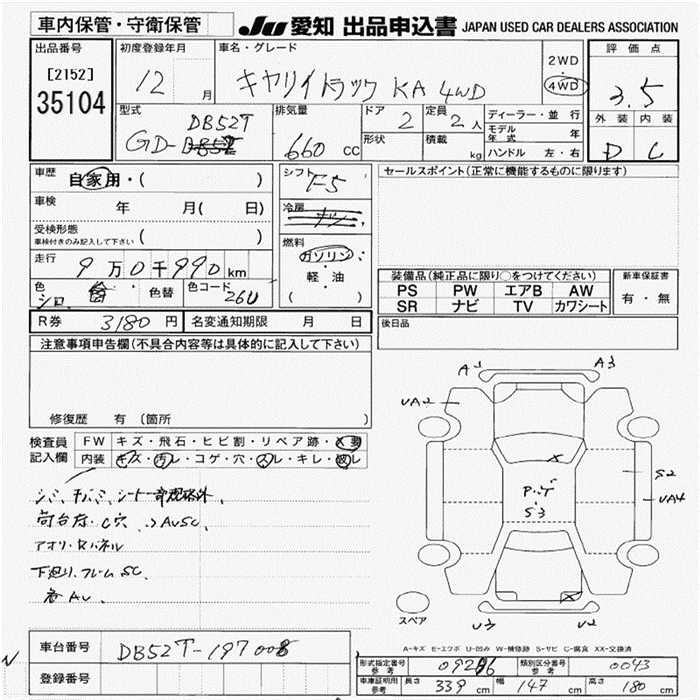 車内保管・守衛保管
JU 愛知 出品申込書 JAPAN USED CAR DEALERS ASSOCIATION
出品番号
[2152]
35104
初度登録年月
12 月
車名・グレード
キャリイトラック KA 4WD
2WD
・
4WD
評価点
3.5
外装 内装
D C
型式
DB52T
GD-
排気量
660 cc
ドア
2
定員
2人
形状
積載
kg
ディーラー・並行
モデル年式 年
ハンドル 左・右
車歴
自家用・( )
車検 年 月( 日)
受検形態
車検付きのみ記入して下さい ( )
走行
9万0千990km
色
シロ
色替
色コード
26U
シフト
F5
冷房
燃料
ガソリン
・
軽・油
( )
セールスポイント(正常に機能するものに限ります)
装備品(純正品に限り○をつけてください)
PS PW エアB AW
SR ナビ TV カワシート
新車保証書
有・無
R券 3180円
名変通知期限 月 日
後日品
注意事項申告欄(不具合内容等は具体的に記入して下さい)
修復歴 有(箇所 )
検査員
記入欄
FW キズ・飛石・ヒビ割・リペア跡・X要
内装 キズ・汚レ・コゲ・穴・スレ・キレ・破レ
荷台
C穴
AUSC,
アオリ・Rパネル
下廻リ、フレームSC,
AU,
A1
A3
UA2
S2
UA4
S3
U3
U2
スペア
A-キズ E-エクボ U-凹み W-補修跡 S-サビ C-腐食 XX-交換済
車台番号 DB52T-197008
登録番号
N
形式指定番号
参考
09286
類別区分番号
参考
0043
車庫証明用
参考
長さ 339 cm 幅 147 cm 高さ 180 cm